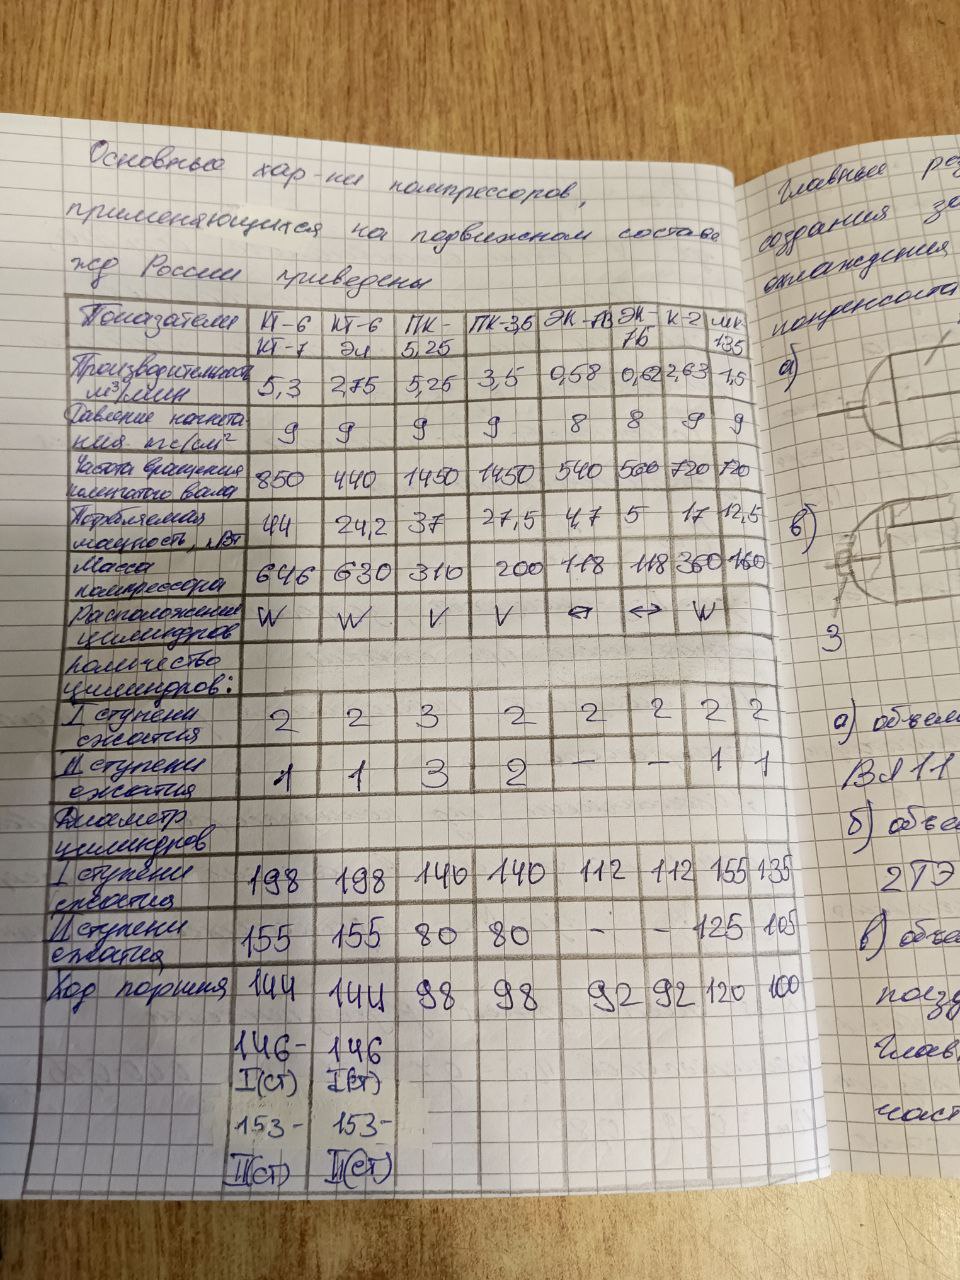 Основные хар-ки компрессоров,
применяющихся на подвижном составе
жд России приведены
Показатели КТ-6 КТ-6 ПК- ПК-3,5 ЭК-7В ЭК- К-2 МК-
КТ-7 Эл 5,25 7Б 135
Производительность
м³/мин 5,3 2,75 5,25 3,5 0,58 0,62 2,63 1,5
Давление нагнета
ния кгс/см² 9 9 9 9 8 8 9 9
Частота вращения
коленчатого вала 850 440 1450 1450 540 560 720 720
Потребляемая
мощность, кВт 44 24,2 37 27,5 4,7 5 17 12,5
Масса
компрессора 646 630 310 200 118 118 360 160
Расположение
цилиндров W W V V ↔ ↔ W
Количество
цилиндров:
I ступени
сжатия 2 2 3 2 2 2 2 2
II ступени
сжатия 1 1 3 2 – – 1 1
Диаметр
цилиндров
I ступени
сжатия 198 198 140 140 112 112 155 135
II ступени
сжатия 155 155 80 80 – – 125 105
Ход поршня 144 144 98 98 92 92 120 100
146- 146
I(ст) I(ст)
153- 153-
II(ст) II(ст)
Главные рез
создания за
охлаждения
конденсата
а)
в)
3
а) объем
ВЛ 11
б) объем
2ТЭ
в) объе
поезд
Глав.
част